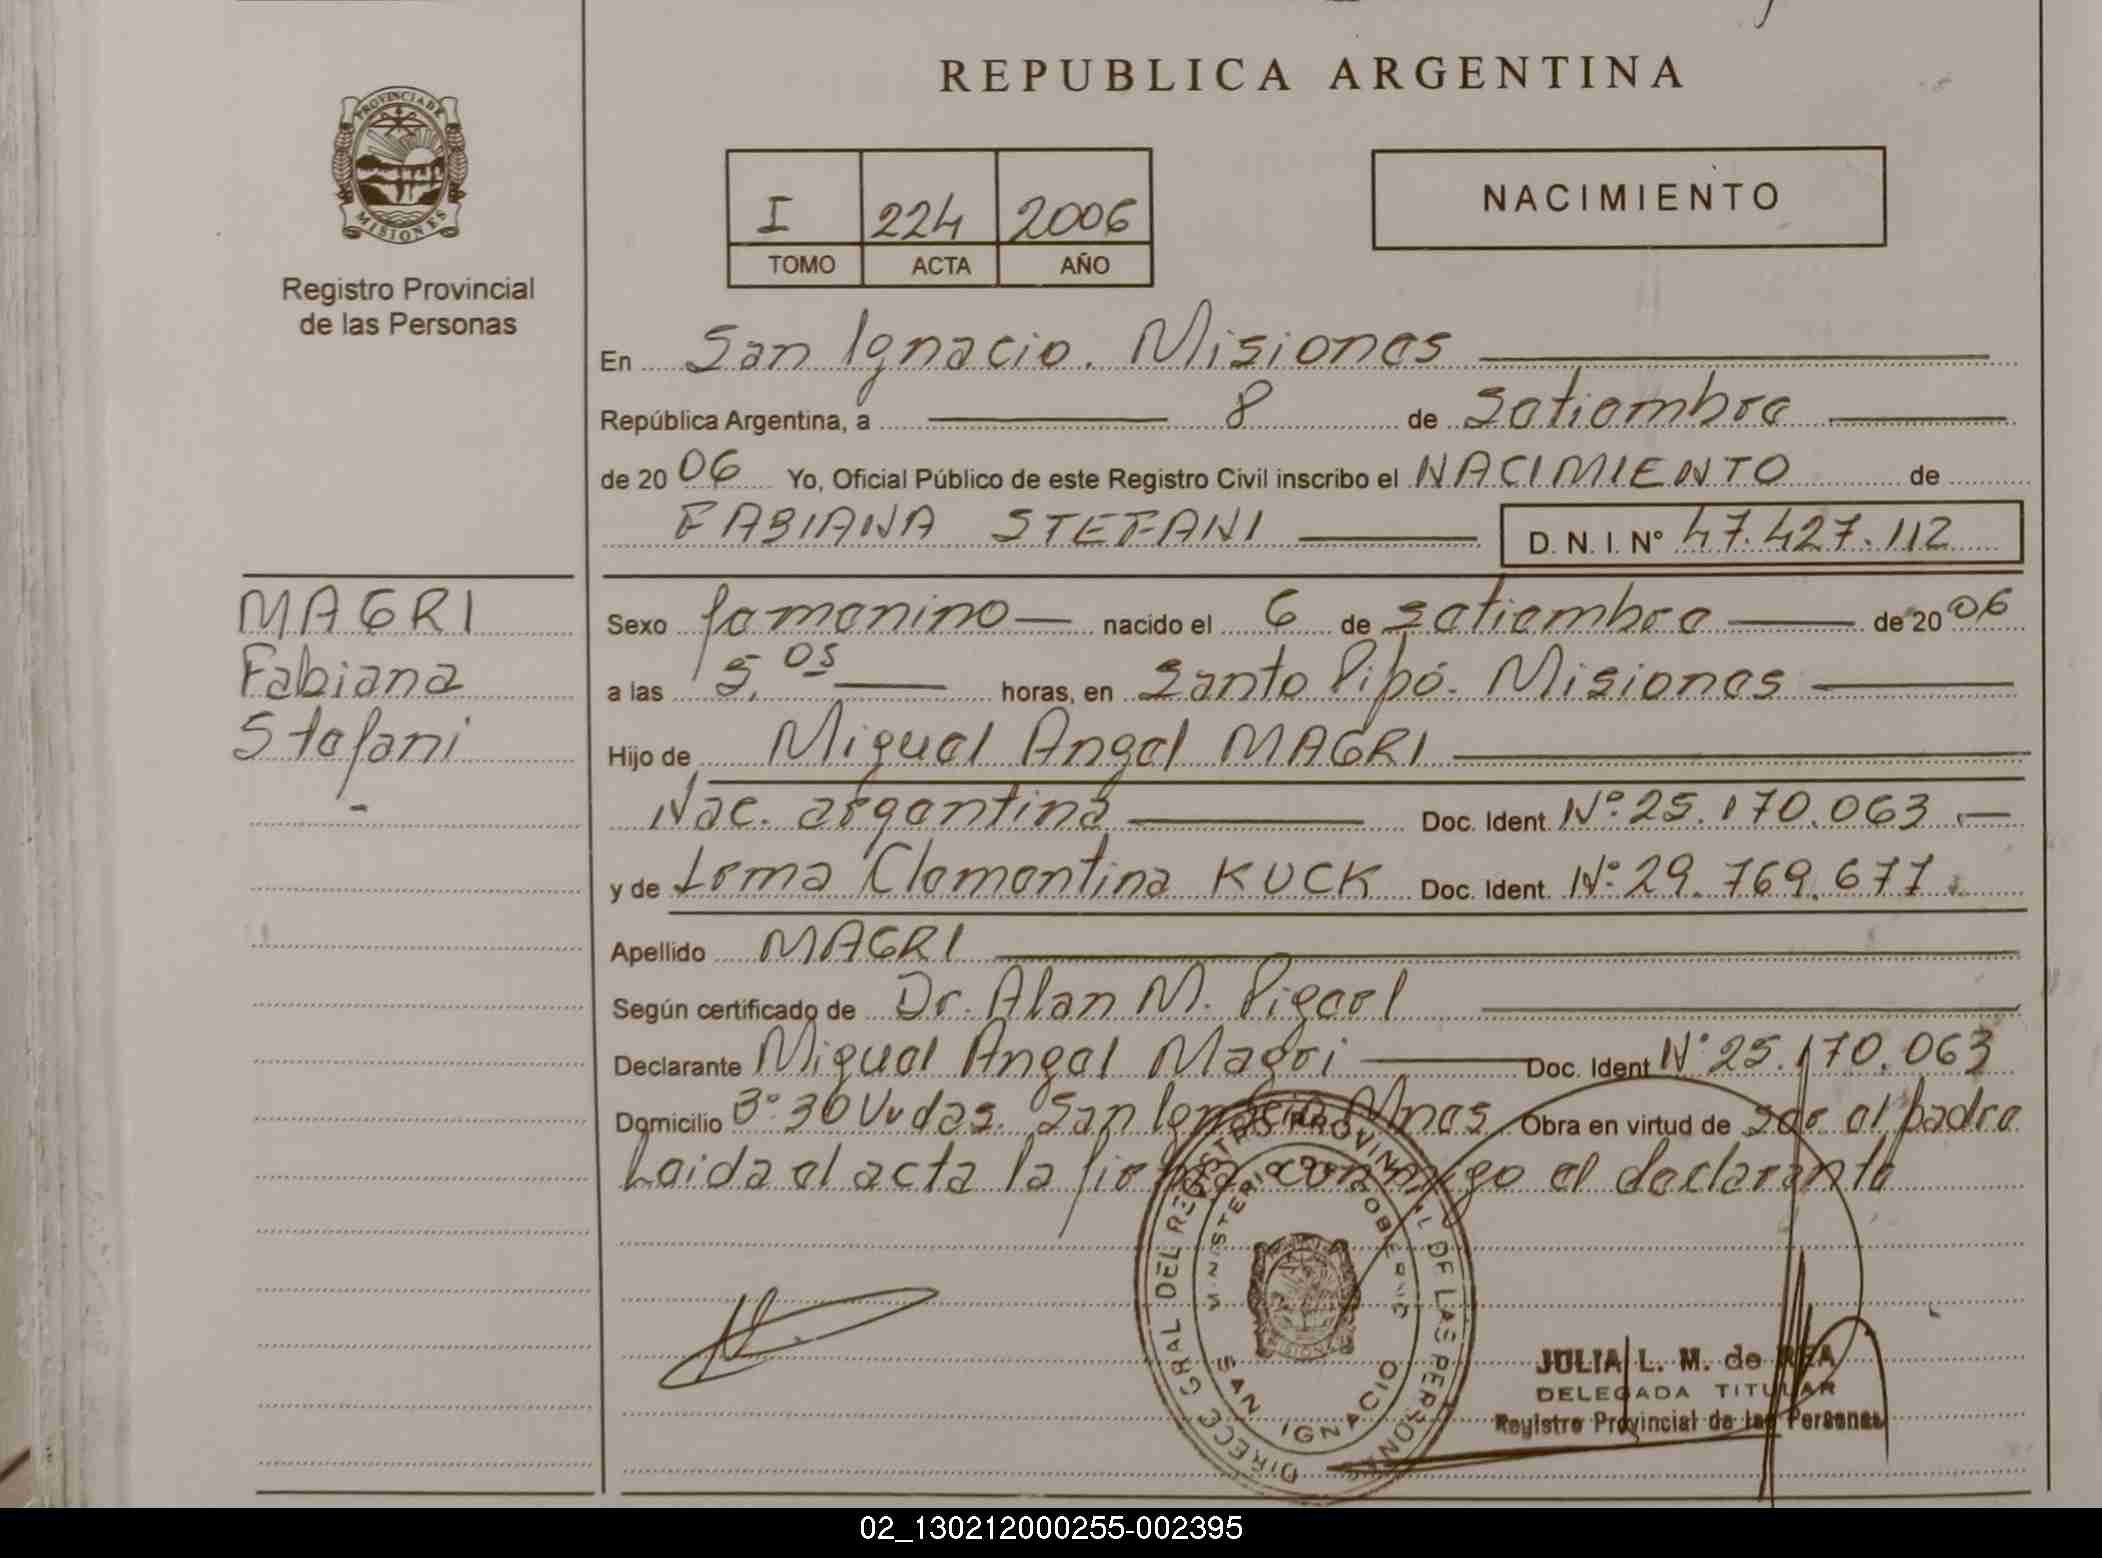 REPUBLICA ARGENTINA
PROVINCIA DE
MISIONES
Registro Provincial
de las Personas
I 224 2006
TOMO ACTA AÑO
NACIMIENTO
En San Ignacio. Misiones
República Argentina, a 8 de Setiembre
de 2006 Yo, Oficial Público de este Registro Civil inscribo el NACIMIENTO de
FABIANA STEFANI D. N. I. Nº 47.427.112
MAGRI
Fabiana
Stefani
Sexo femenino nacido el 6 de setiembre de 2006
a las 5,05 horas, en Santo Pipó. Misiones
Hijo de Miguel Angel MAGRI
Nac. argentina Doc. Ident. Nº 25.170.063
y de Irma Clementina KUCK Doc. Ident. Nº 29.769.677
Apellido MAGRI
Según certificado de Dr. Alan M.
Declarante Miguel Angel Magri Doc. Ident Nº 25.170.063
Domicilio Bº 30 Vvdas. San Ignacio Mnes Obra en virtud de ser el padre
Leida el acta la firma conmigo el declarante
DIRECC GRAL DEL REGISTRO PROVINCIAL DE LAS PERSONAS
MINISTERIO DE GOBIERNO
SAN IGNACIO
JULIA L. M. de REA
DELEGADA TITULAR
Registro Provincial de las Personas
02_130212000255-002395